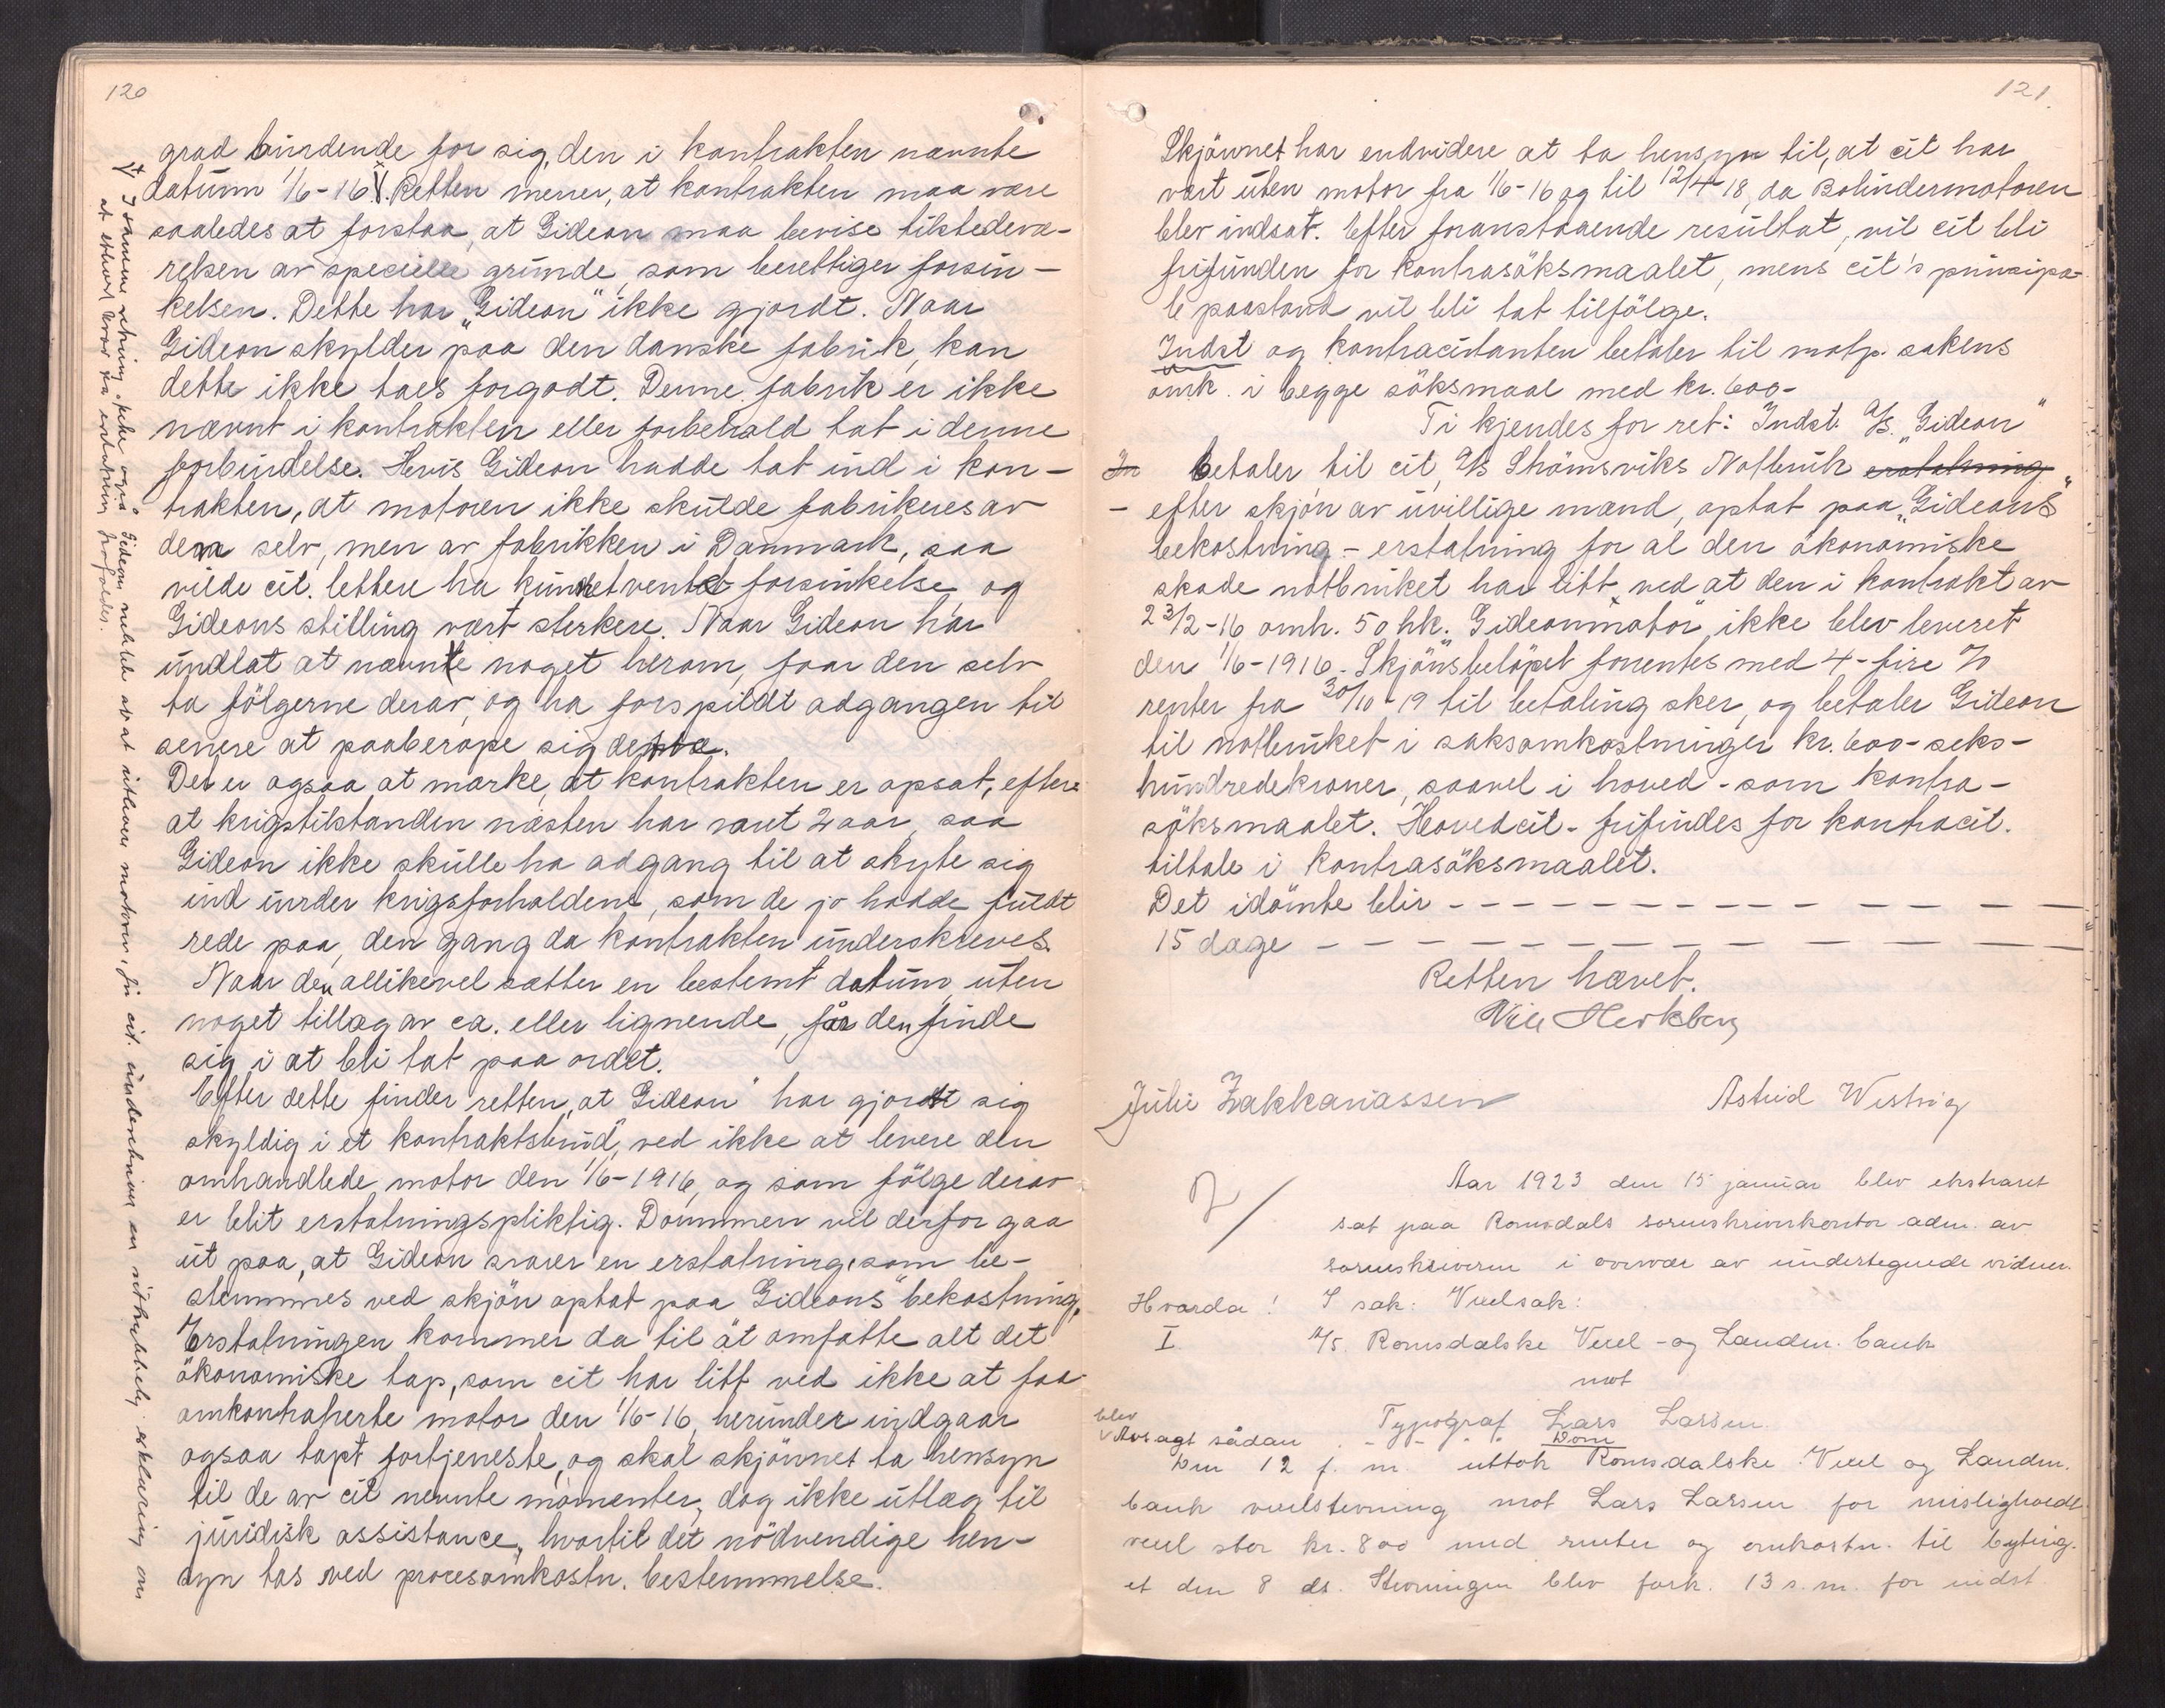 120
grad bindende for sig, den i kontrakten nævnte
datum 1/6-16 x). Retten mener, at kontrakten maa være
saaledes at forstaa, at Gideon maa bevise tilstedevæ-
relsen av specielle grunde, som berettiger forsin-
kelsen. Dette har „Gideon" ikke gjordt. Naar
Gideon skylder paa den danske fabrik, kan
dette ikke taes forgodt. Denne fabrik er ikke
nævnt i kontrakten eller forbehold tat i denne
forbindelse. Hvis Gideon hadde tat ind i kon-
trakten, at motoren ikke skulde fabrikeres av
dem selv, men av fabrikken i Danmark, saa
vilde cit. lettere ha kunnet vente forsinkelse, og
Gideons stilling vært sterkere. Naar Gideon har
undlat at nævnte noget herom, faar den selv
ta følgerne derav, og ha forspildt adgangen til
senere at paaberope sig dette.
Det er ogsaa at merke, at kontrakten er opsat, efter
at krigstilstanden næsten har varet 2 aar, saa
Gideon ikke skulle ha adgang til at skyte sig
ind under krigsforholdene, som de jo hadde fuldt
rede paa, den gang da kontrakten underskreves.
Naar den allikevel sætter en bestemt datum uten
noget tillæg av ca. eller lignende, får den finde
sig i at bli tat paa ordet.
Efter dette finder retten, at Gideon" har gjordt sig
skyldig i et kontraktsbrud, ved ikke at levere den
omhandlede motor den 1/6-1916, og som følge derav
er blit erstatningspliktig. Dommen vil derfor gaa
ut paa, at Gideon svarer en erstatning, som be-
stemmes ved skjøn optat paa Gideons" bekostning.
Erstatningen kommer da til at omfatte alt det
økonomiske tap, som cit har litt ved ikke at faa
omkontraherte motor den 1/6-16, herunder indgaar
ogsaa tapt fortjeneste, og skal skjønnet ta hensyn
til de av cit nevnte momenter, dog ikke utlæg til
juridisk assistance, hvortil det nødvendige hen-
syn tas ved procesomkostn. bestemmelse.
x) I samme retning peker også Gideons at at utlevere motoren, før cit. underskriver en uttrykkelig erklæring om
at ethvert krav på erstatning frafaldes.
121.
Skjønnet har endvidere at ta hensyn til, at cit har
vært uten motor fra 1/6-16 og til 12/4-18, da Bolindermotoren
blev indsat. Efter foranstaaende resultat, vil cit bli
frifunden for kontrasøksmaalet, mens cit's principa-
le paastand vil bli tat tilfølge.
Indst og kontracitanten betaler til motp. sakens
omk. i begge søksmaal med kr. 600-
Ti kjendes for ret: Indst. A/S. „Gideon"
In betaler til cit, A/S Strømsviks Notbruk erstatning
- efter skjøn av uvillige mænd, optat paa „Gideons"
bekostning - erstatning for al den økonomiske
skade notbruket har litt, ved at den i kontrakt av
23/2-16 omh. 50 hk. „Gideonmotor" ikke blev leveret
den 1/6-1916. Skjønsbeløpet forrentes med 4-fire %
renter fra 30/10-19 til betaling sker, og betaler Gideon
til notbruket i saksomkostninger kr. 600-seks-
hundredekroner, saavel i hoved- som kontra-
søksmaalet. Hovedcit. frifindes for kontracit.
tiltale i kontrasøksmaalet.
Det idømte blir
15 dage
Retten hævet.
Julie Zakkariassen Astrid Westvig
Aar 1923 den 15 januar blev ekstraret
sat paa Romsdals sorenskriverkontor adm. av
sorenskriveren i overvær av undertegnede vidner.
Hvorda! I sak: Vexelsak:
I A/S. Romsdalske Vexel- og Landm. bank
mot
Typograf Lars Larsen.
blev
Avsagt sådan Dom
Den 12 f. m. uttok Romsdalske Vexel og Landm.
bank vexelstevning mot Lars Larsen for misligholdt
vexel stor kr. 800 med renter og omkostn. til
et den 8 ds. Stevningen blev fork. 13 s. m. for indst